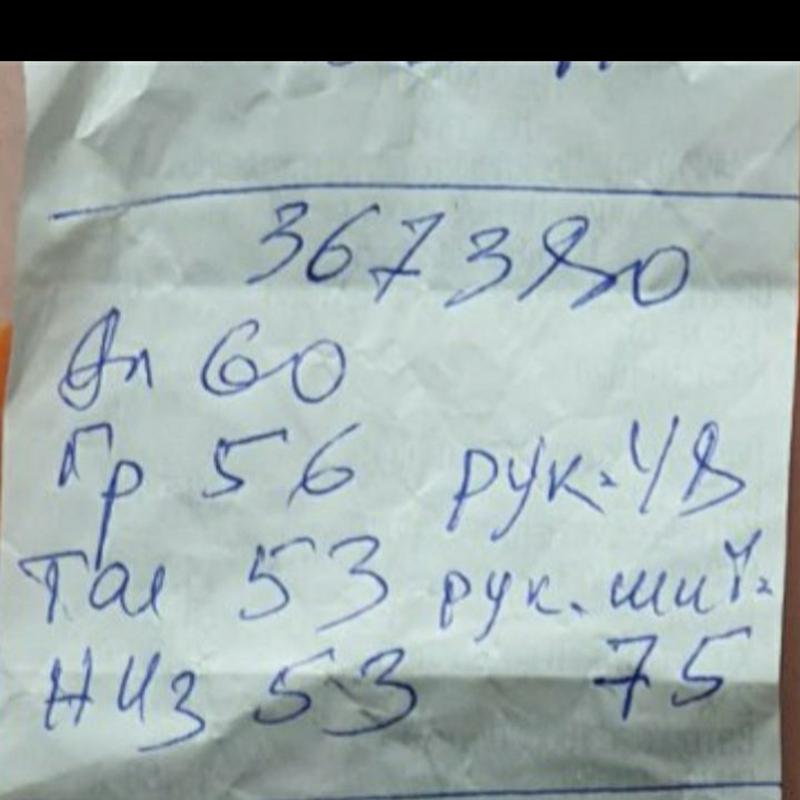 367380
Дл 60
Гр 56 рук. 48
Тал 53 рук. шит.
Низ 53 75